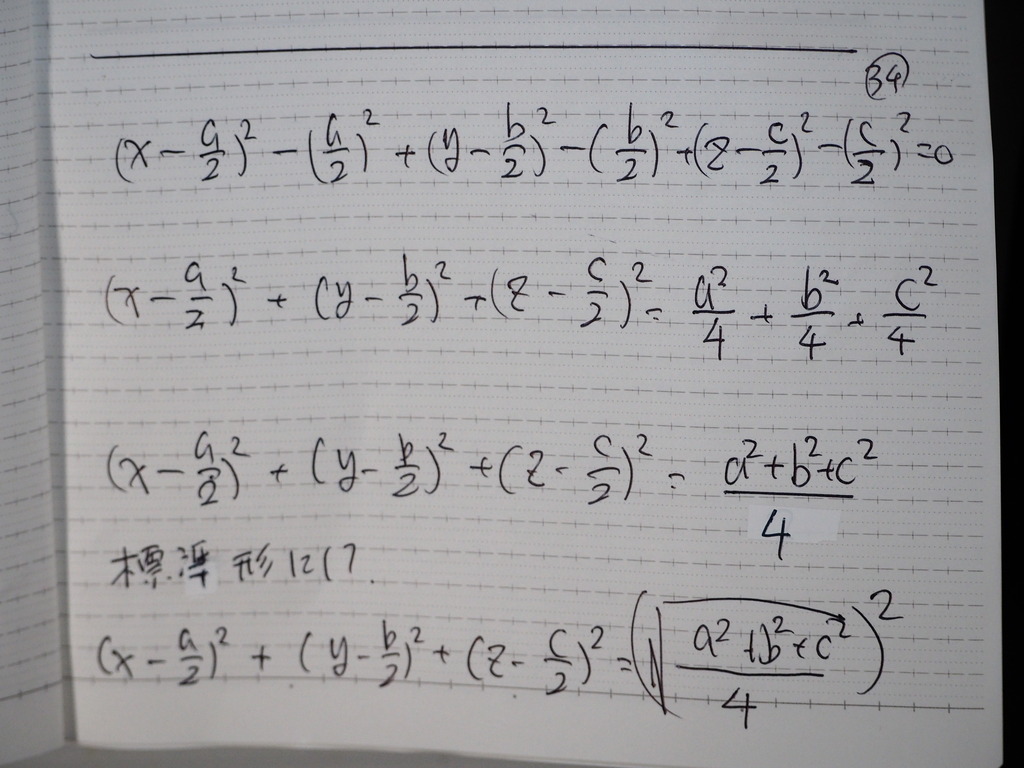 ㉞
(x − a/2)² − (a/2)² + (y − b/2)² − (b/2)² + (z − c/2)² − (c/2)² = 0
(x − a/2)² + (y − b/2)² + (z − c/2)² = a²/4 + b²/4 + c²/4
(x − a/2)² + (y − b/2)² + (z − c/2)² = (a²+b²+c²)/4
標準形に
(x − a/2)² + (y − b/2)² + (z − c/2)² = (√((a²+b²+c²)/4))²